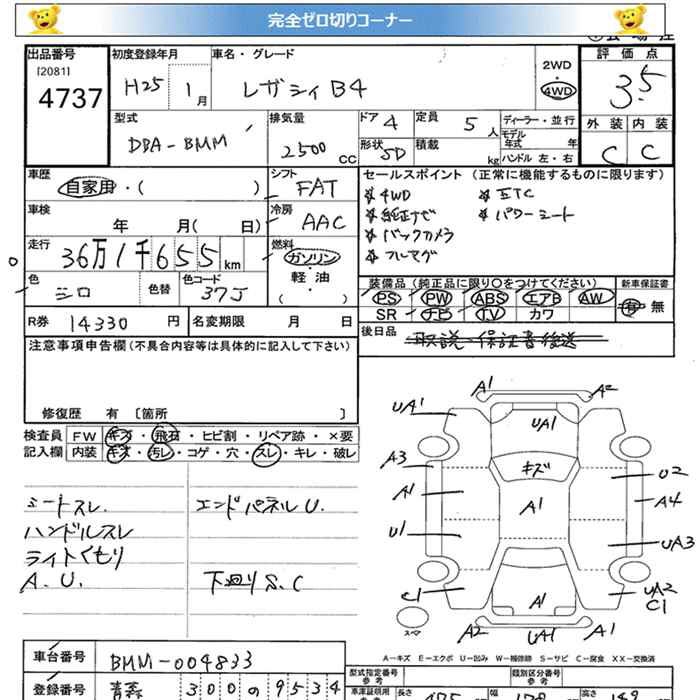 完全ゼロ切りコーナー
出品番号 初度登録年月 車名・グレード 2WD 評価点
[2081] H25 1月 レガシィ B4 4WD 3.5
4737
型式 排気量 ドア 4 定員 5人 ディーラー・並行 外装 内装
DBA-BMM 2500cc 形状 SD 積載 kg モデル年式 年 C C
ハンドル 左・右
車歴 シフト セールスポイント (正常に機能するものに限ります)
自家用・( ) FAT
※ 4WD ※ ETC
車検 年 月( 日) 冷房 AAC
※ 純正ナビ ※ パワーシート
※ バックカメラ
※ フルセグ
走行 36万1千655km 燃料 ガソリン・軽油・( )
色 シロ 色替 色コード 37J
装備品 (純正品に限り〇をつけてください) 新車保証書
PS PW ABS エアB AW 有・無
SR ナビ TV カワ
R券 14330円 名変期限 月 日
後日品 取説・保証書後送
注意事項申告欄(不具合内容等は具体的に記入して下さい)
修復歴 有 [箇所 ]
検査員 FW キズ・飛石・ヒビ割・リペア跡・×要
記入欄 内装 キズ・汚レ・コゲ・穴・スレ・キレ・破レ
シートスレ. エンドパネルU.
ハンドルスレ
ライトくもり
A.U. 下廻りS.C
A1 A2
UA1 UA1
A3 キズ U2
A1 A1 A4
U1 UA3
C1 A1 UA2
C1
スペア A2 UA1 A1
A-キズ E-エクボ U-凹み W-補修跡 S-サビ C-腐食 XX-交換済
車台番号 BMM-004833
登録番号 青森 300の9534
型式指定番号 類別区分番号
参考 参考
車庫証明用 長さ 幅 高さ